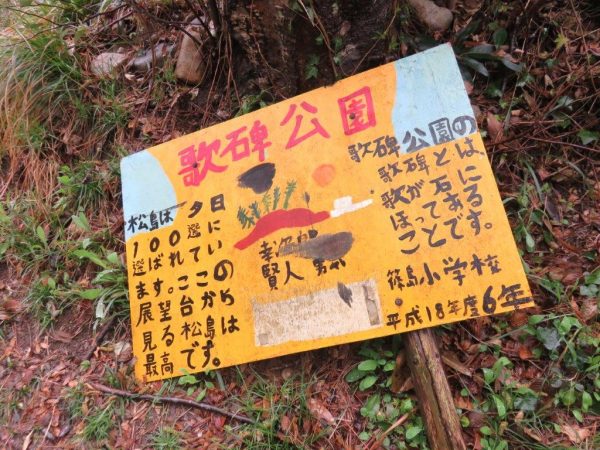 歌碑公園
歌碑公園の
歌碑とは、
歌が石に
ほってある
ことです。
篠島小学校
平成18年度6年
松島は夕日
100選に
選ばれてい
ます。この
展望台から
見る松島は
最高です。
賢人